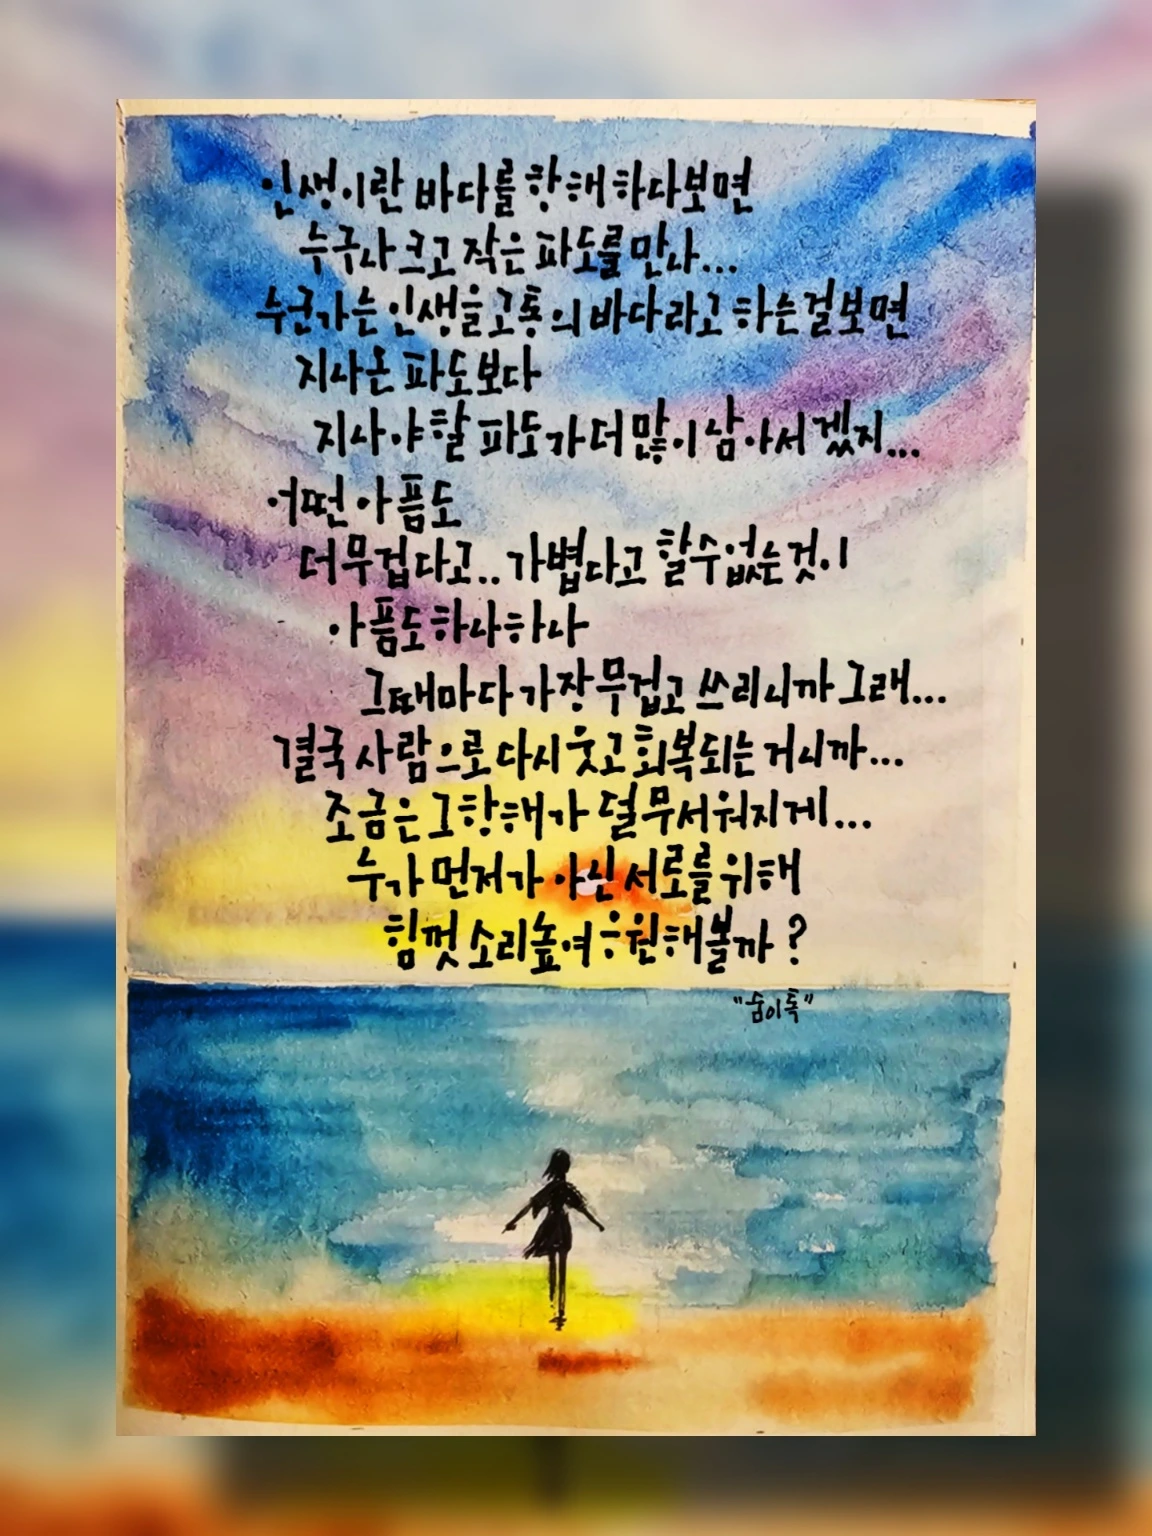 인생이란 바다를 항해하다보면
누구나 크고 작은 파도를 만나...
누군가는 인생을 고통의 바다라고 하는걸보면
지나온 파도보다
지나야할 파도가 더 많이 남아서겠지...
어떤 아픔도
더 무겁다고.. 가볍다고 할수없는것이
아픔도 하나하나
그때마다 가장 무겁고 쓰리니까 그래...
결국 사람으로 다시 웃고 회복되는 거니까...
조금은 그 항해가 덜 무서워지게...
누가 먼저가 아닌 서로를 위해
힘껏 소리높여 응원해볼까?
"숨이톡"